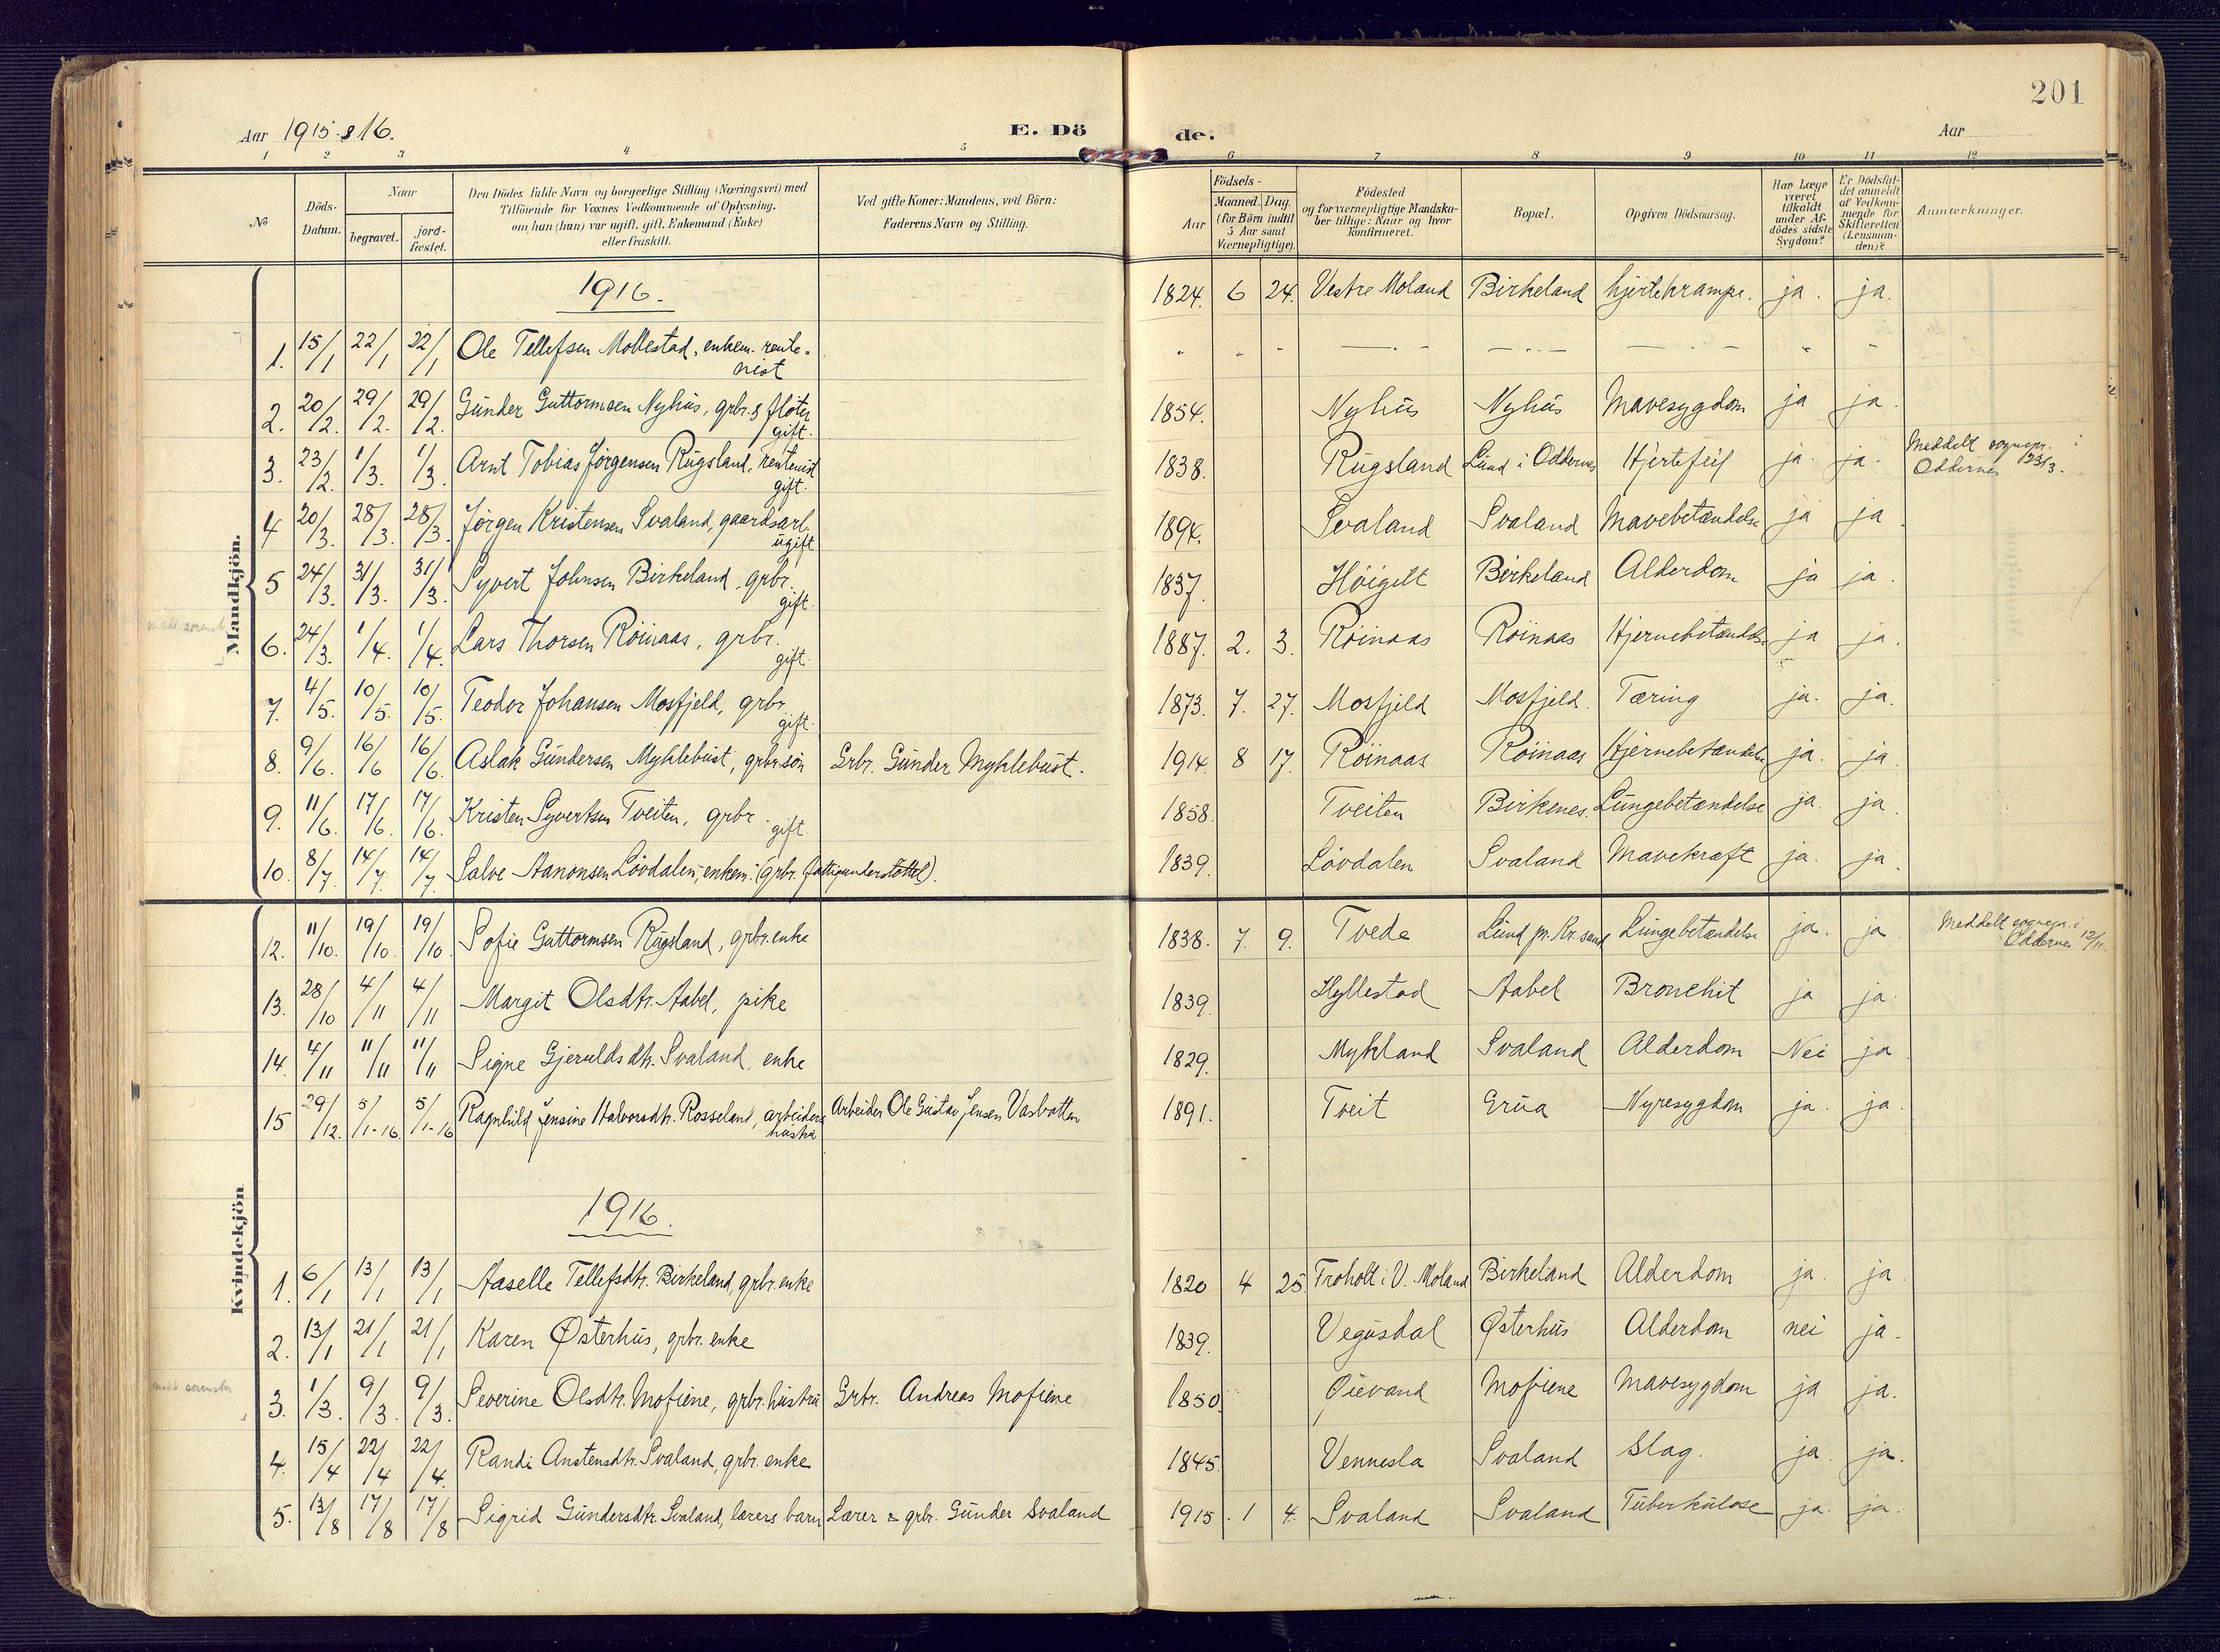 201
Aar 1915 & 16.
E. Dö de.
Aar
1 2 3 4 5 6 7 8 9 10 11 12
No
Döds-Datum.
Naar
begravet.
jord-fæstet.
Den Dödes fulde Navn og borgerlige Stilling (Næringsvei) med
Tilföiende for Voxnes Vedkommende af Oplysning,
om han (hun) var ugift, gift, Enkemand (Enke)
eller fraskilt.
Ved gifte Koner: Mandens, ved Börn:
Faderens Navn og Stilling.
Födsels-
Aar
Maaned. Dag.
(for Börn indtil
5 Aar samt
Værnepligtige).
Födested
og for værnepligtige Mandska-
ber tillige: Naar og hvor
konfirmeret.
Bopæl.
Opgiven Dödsaarsag.
Har Læge
været
tilkaldt
under Af-
dödes sidste
Sygdom?
Er Dödsfal-
det anmeldt
af Vedkom-
mende for
Skifteretten
(Lensman-
den)?
Anmærkninger.
Mandkjön.
1916.
1824. 6 24. Vestre Moland Birkeland hjertekrampe. ja. ja.
1. 15/1 22/1 22/1 Ole Tellefsen Mollestad, enkem. rente-
nist
2. 20/2. 29/2. 29/2. Gunder Guttormsen Nyhus, grbr. & fløter
gift. 1854. Nyhus Nyhus Mavesygdom ja ja.
3. 23/2. 1/3. 1/3. Arnt Tobias Jörgensen Rugsland, rentenist
gift. 1838. Rugsland Lund i Oddernes Hjertefeil ja. ja. Meddelt sognepr. i
Oddernes 23/3.
4 20/3. 28/3. 28/3. Jörgen Kristensen Svaland, gaardsarb.
ugift 1894. Svaland Svaland Mavebetændelse ja ja.
5 24/3. 31/3. 31/3. Syvert Johnsen Birkeland, grbr.
gift. 1837. Höigilt Birkeland Alderdom ja ja.
6. 24/3. 1/4. 1/4. Lars Thorsen Röinaas, grbr.
gift. 1887. 2. 3. Röinaas Röinaas Hjernebetændelse ja ja.
7. 4/5. 10/5. 10/5. Teodor Johansen Mosfjeld, grbr.
gift. 1873. 7. 27. Mosfjeld Mosfjeld. Tæring ja. ja.
8. 9/6. 16/6 16/6. Aslak Gundersen Myklebust, grbr.sön Grbr. Gunder Myklebust. 1914. 8 17. Röinaas Röinaas Hjernebetændelse ja. ja.
9. 11/6. 17/6. 17/6. Kristen Syvertsen Tveiten, grbr.
gift. 1858. Tveiten Birkenes. Lungebetændelse ja. ja
10. 8/7. 14/7. 14/7. Salve Aanonsen Lövdalen, enkem. (grbr. fattigunderstöttet). 1839. Lövdalen Svaland Mavekræft ja. ja.
Kvindekjön
12. 11/10. 19/10. 19/10. Sofie Guttormsen Rugsland, grbr. enke 1838. 7. 9. Tvede Lund pr. Kr.sand Lungebetændelse ja. ja Meddelt sognepr. i
Oddernes 12/11.
13. 28/10 4/11 4/11 Margit Olsdtr. Aabel, pike 1839. Hyllestad Aabel Bronchit ja ja.
14. 4/11 11/11 11/11 Signe Gjeruldsdtr. Svaland, enke 1829. Mykland Svaland Alderdom Nei ja
15 29/12. 5/1-16. 5/1-16 Ragnhild Jensine Halvorsdtr. Rosseland, arbeiders
hustru Arbeider Ole Gustav Jensen Vasbotten 1891. Tveit Grua Nyresygdom ja. ja.
1916.
1. 6/1 13/1 13/1 Aaselle Tellefsdtr. Birkeland, grbr. enke 1820 4 25. Troholt i V. Moland Birkeland Alderdom ja. ja.
2. 13/1 21/1 21/1 Karen Østerhus, grbr. enke 1839. Vegusdal Østerhus Alderdom nei ja.
3. 1/3. 9/3. 9/3. Severine Olsdtr. Mofiene, grbr. hustru Grbr. Andreas Mofiene 1850. Øievand Mofiene Mavesygdom ja ja.
4. 15/4 22/4 22/4. Randi Anstensdtr. Svaland, grbr. enke 1845. Vennesla Svaland Slag. ja. ja.
5. 13/8 17/8 17/8 Sigrid Gundersdtr. Svaland, lærers barn Lærer & grbr. Gunder Svaland 1915. 1 4. Svaland Svaland Tuberkulose ja. ja.